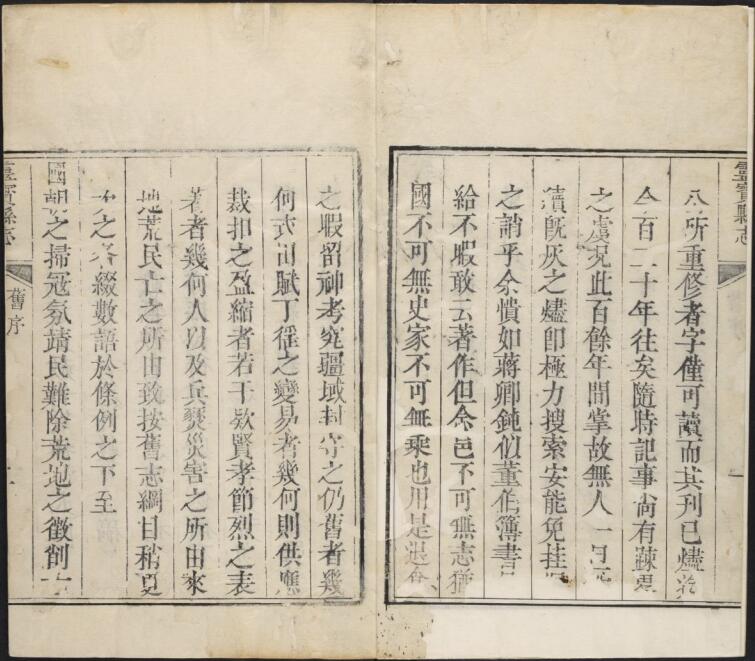 靈寶縣志
所重修者字僅可讀而其刊已燼於
今百二十年往矣隨時記事尚有疎
之處況此百餘年間掌故無人一旦
續旣灰之燼卽極力搜索安能免挂
之誚乎余憒如蔣卿鈍似董伯簿書
給不暇敢云著作但念邑不可無志猶
國不可無史家不可無乘也用是退食
之暇留神考究疆域封守之仍舊者幾
何式田賦丁徭之變易者幾何則供應
裁扣之盈縮者若干欵賢孝節烈之表
著者幾何人以及兵燹災害之所由來
地荒民亡之所由致按舊志綱目稍更
次之各綴數語於條例之下至
國朝之掃冠氛靖民難除荒地之徵創
靈寶縣志
舊序